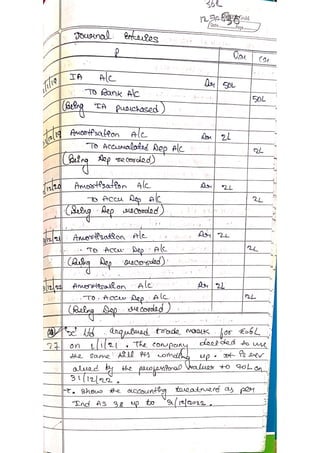 Journal Entries
P Dr. Cr.
1/19 IA A/C Dr 50L
To Bank A/C 50L
(Being IA purchased)
12/19 Amortisation A/C Dr 2L
To Accumalated Dep A/C 2L
(Being Dep recorded)
12/20 Amortisation A/C Dr 2L
To Accu Dep A/C 2L
(Being Dep recorded)
12/21 Amortisation A/C Dr 2L
To Accu. Dep. A/C 2L
(Being Dep recorded)
12/22 Amortisation A/C Dr 2L
To Accu Dep A/C 2L
(Being Dep recorded)
'X' Ltd acquired trade mark for
27 on 1/1/21. The company decided to use
the same till its winding up. It is rev
alued by the professional valuer to 90L on
31/12/22.
Show the accounting treatment as per
Ind AS 38 up to 31/12/2022.